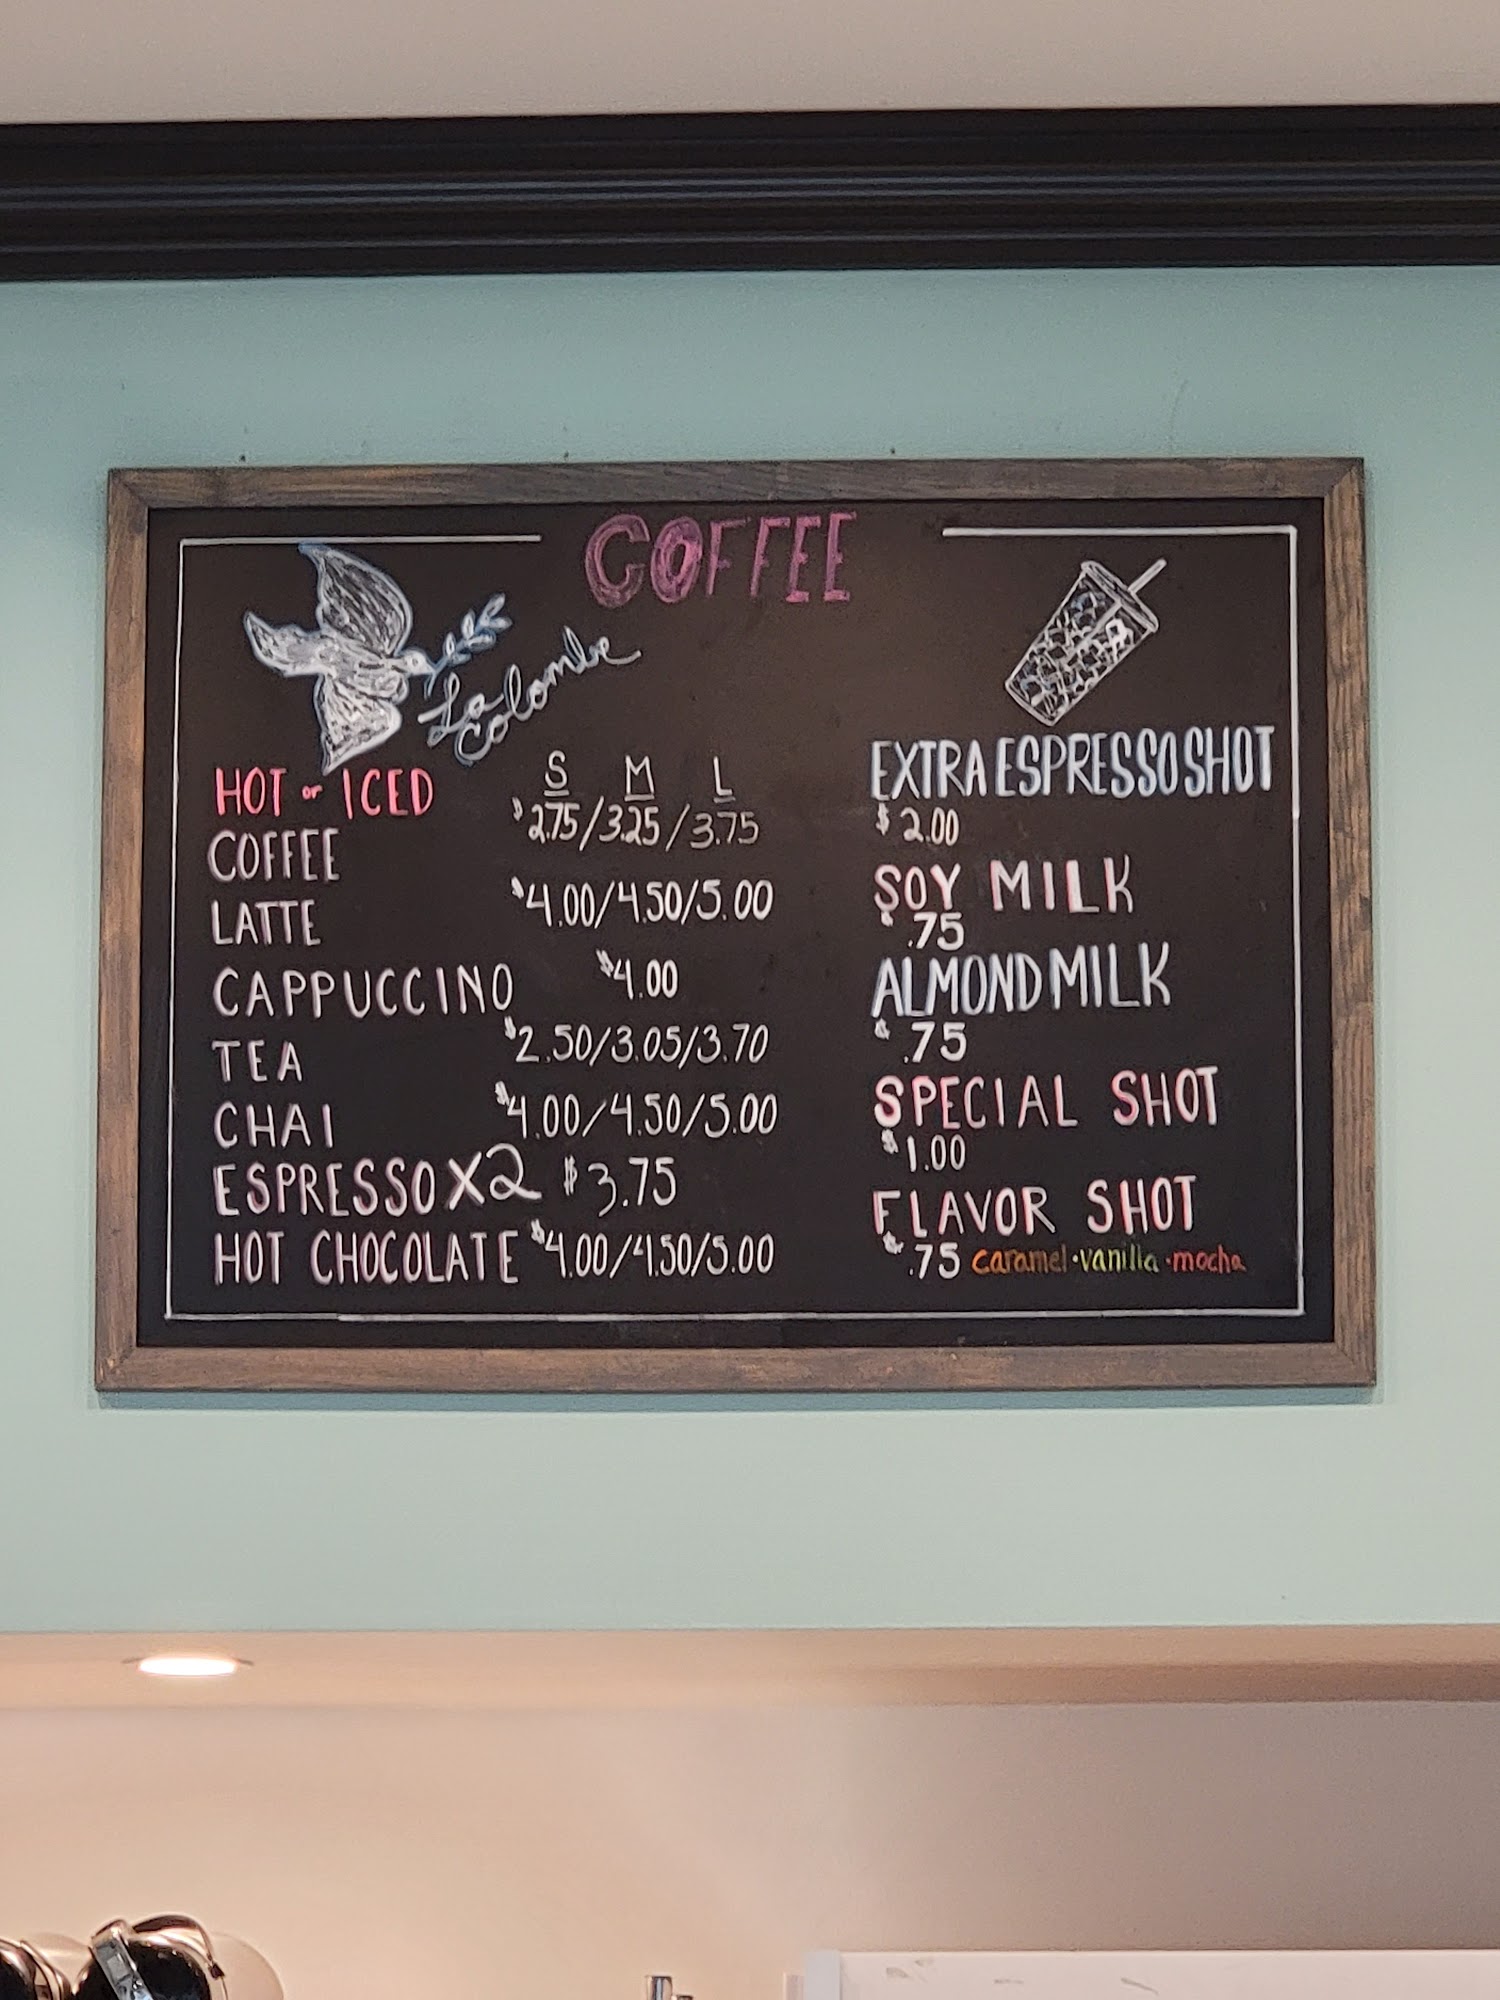 COFFEE
La
Colombe
S M L
HOT or ICED
COFFEE $2.75/3.25/3.75
LATTE $4.00/4.50/5.00
CAPPUCCINO $4.00
TEA $2.50/3.05/3.70
CHAI $4.00/4.50/5.00
ESPRESSO X2 $3.75
HOT CHOCOLATE $4.00/4.50/5.00
EXTRA ESPRESSO SHOT
$2.00
SOY MILK
$.75
ALMOND MILK
$.75
SPECIAL SHOT
$1.00
FLAVOR SHOT
$.75 caramel·vanilla·mocha